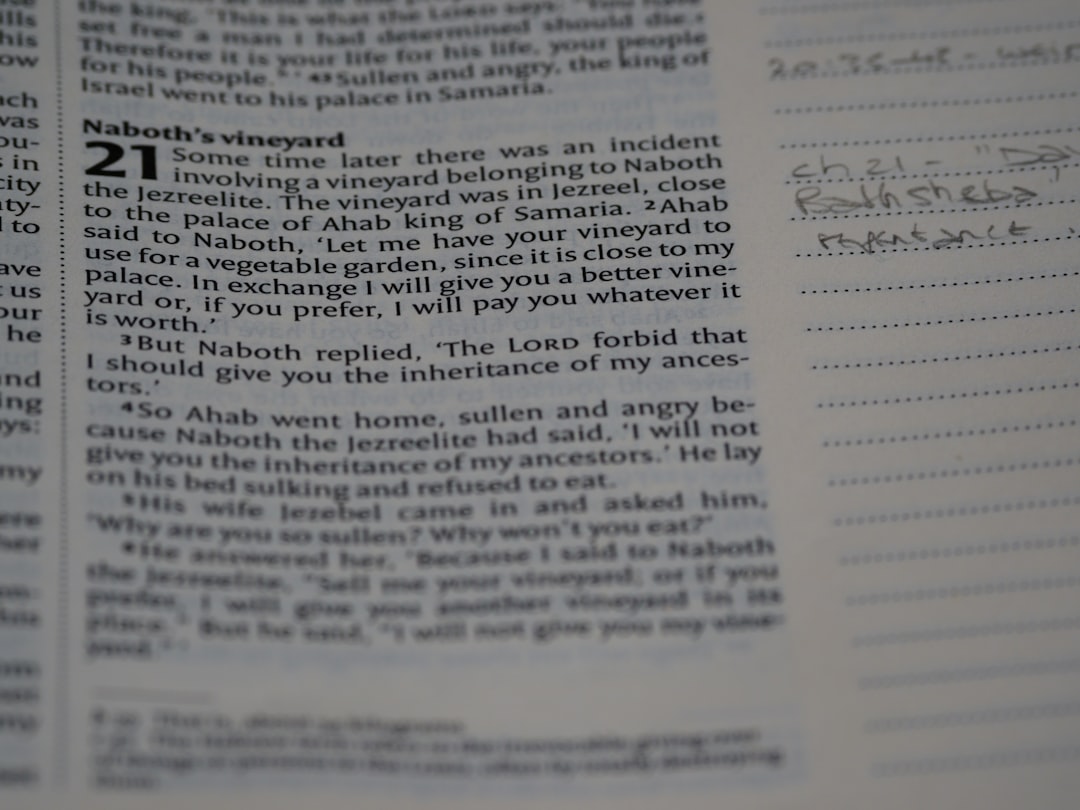 ills
his
ow
ach
was
ou-
s in
city
nty-
l to
ave
t us
our
he
and
ing
ays:
my
ere
the king, 'This is what the LORD says: 'You have
set free a man I had determined should die.
Therefore it is your life for his life, your people
for his people.' ' 43Sullen and angry, the king of
Israel went to his palace in Samaria.
Naboth's vineyard
21 Some time later there was an incident
involving a vineyard belonging to Naboth
the Jezreelite. The vineyard was in Jezreel, close
to the palace of Ahab king of Samaria. 2Ahab
said to Naboth, 'Let me have your vineyard to
use for a vegetable garden, since it is close to my
palace. In exchange I will give you a better vine-
yard or, if you prefer, I will pay you whatever it
is worth.'
3But Naboth replied, 'The LORD forbid that
I should give you the inheritance of my ances-
tors.'
4So Ahab went home, sullen and angry be-
cause Naboth the Jezreelite had said, 'I will not
give you the inheritance of my ancestors.' He lay
on his bed sulking and refused to eat.
5His wife Jezebel came in and asked him,
'Why are you so sullen? Why won't you eat?'
6He answered her, 'Because I said to Naboth
the Jezreelite, "Sell me your vineyard; or if you
prefer, I will give you another vineyard in its
place." But he said, "I will not give you my vine-
yard." '
20:35-48 -
ch 21 - "Dav
Bathsheba"
repentance